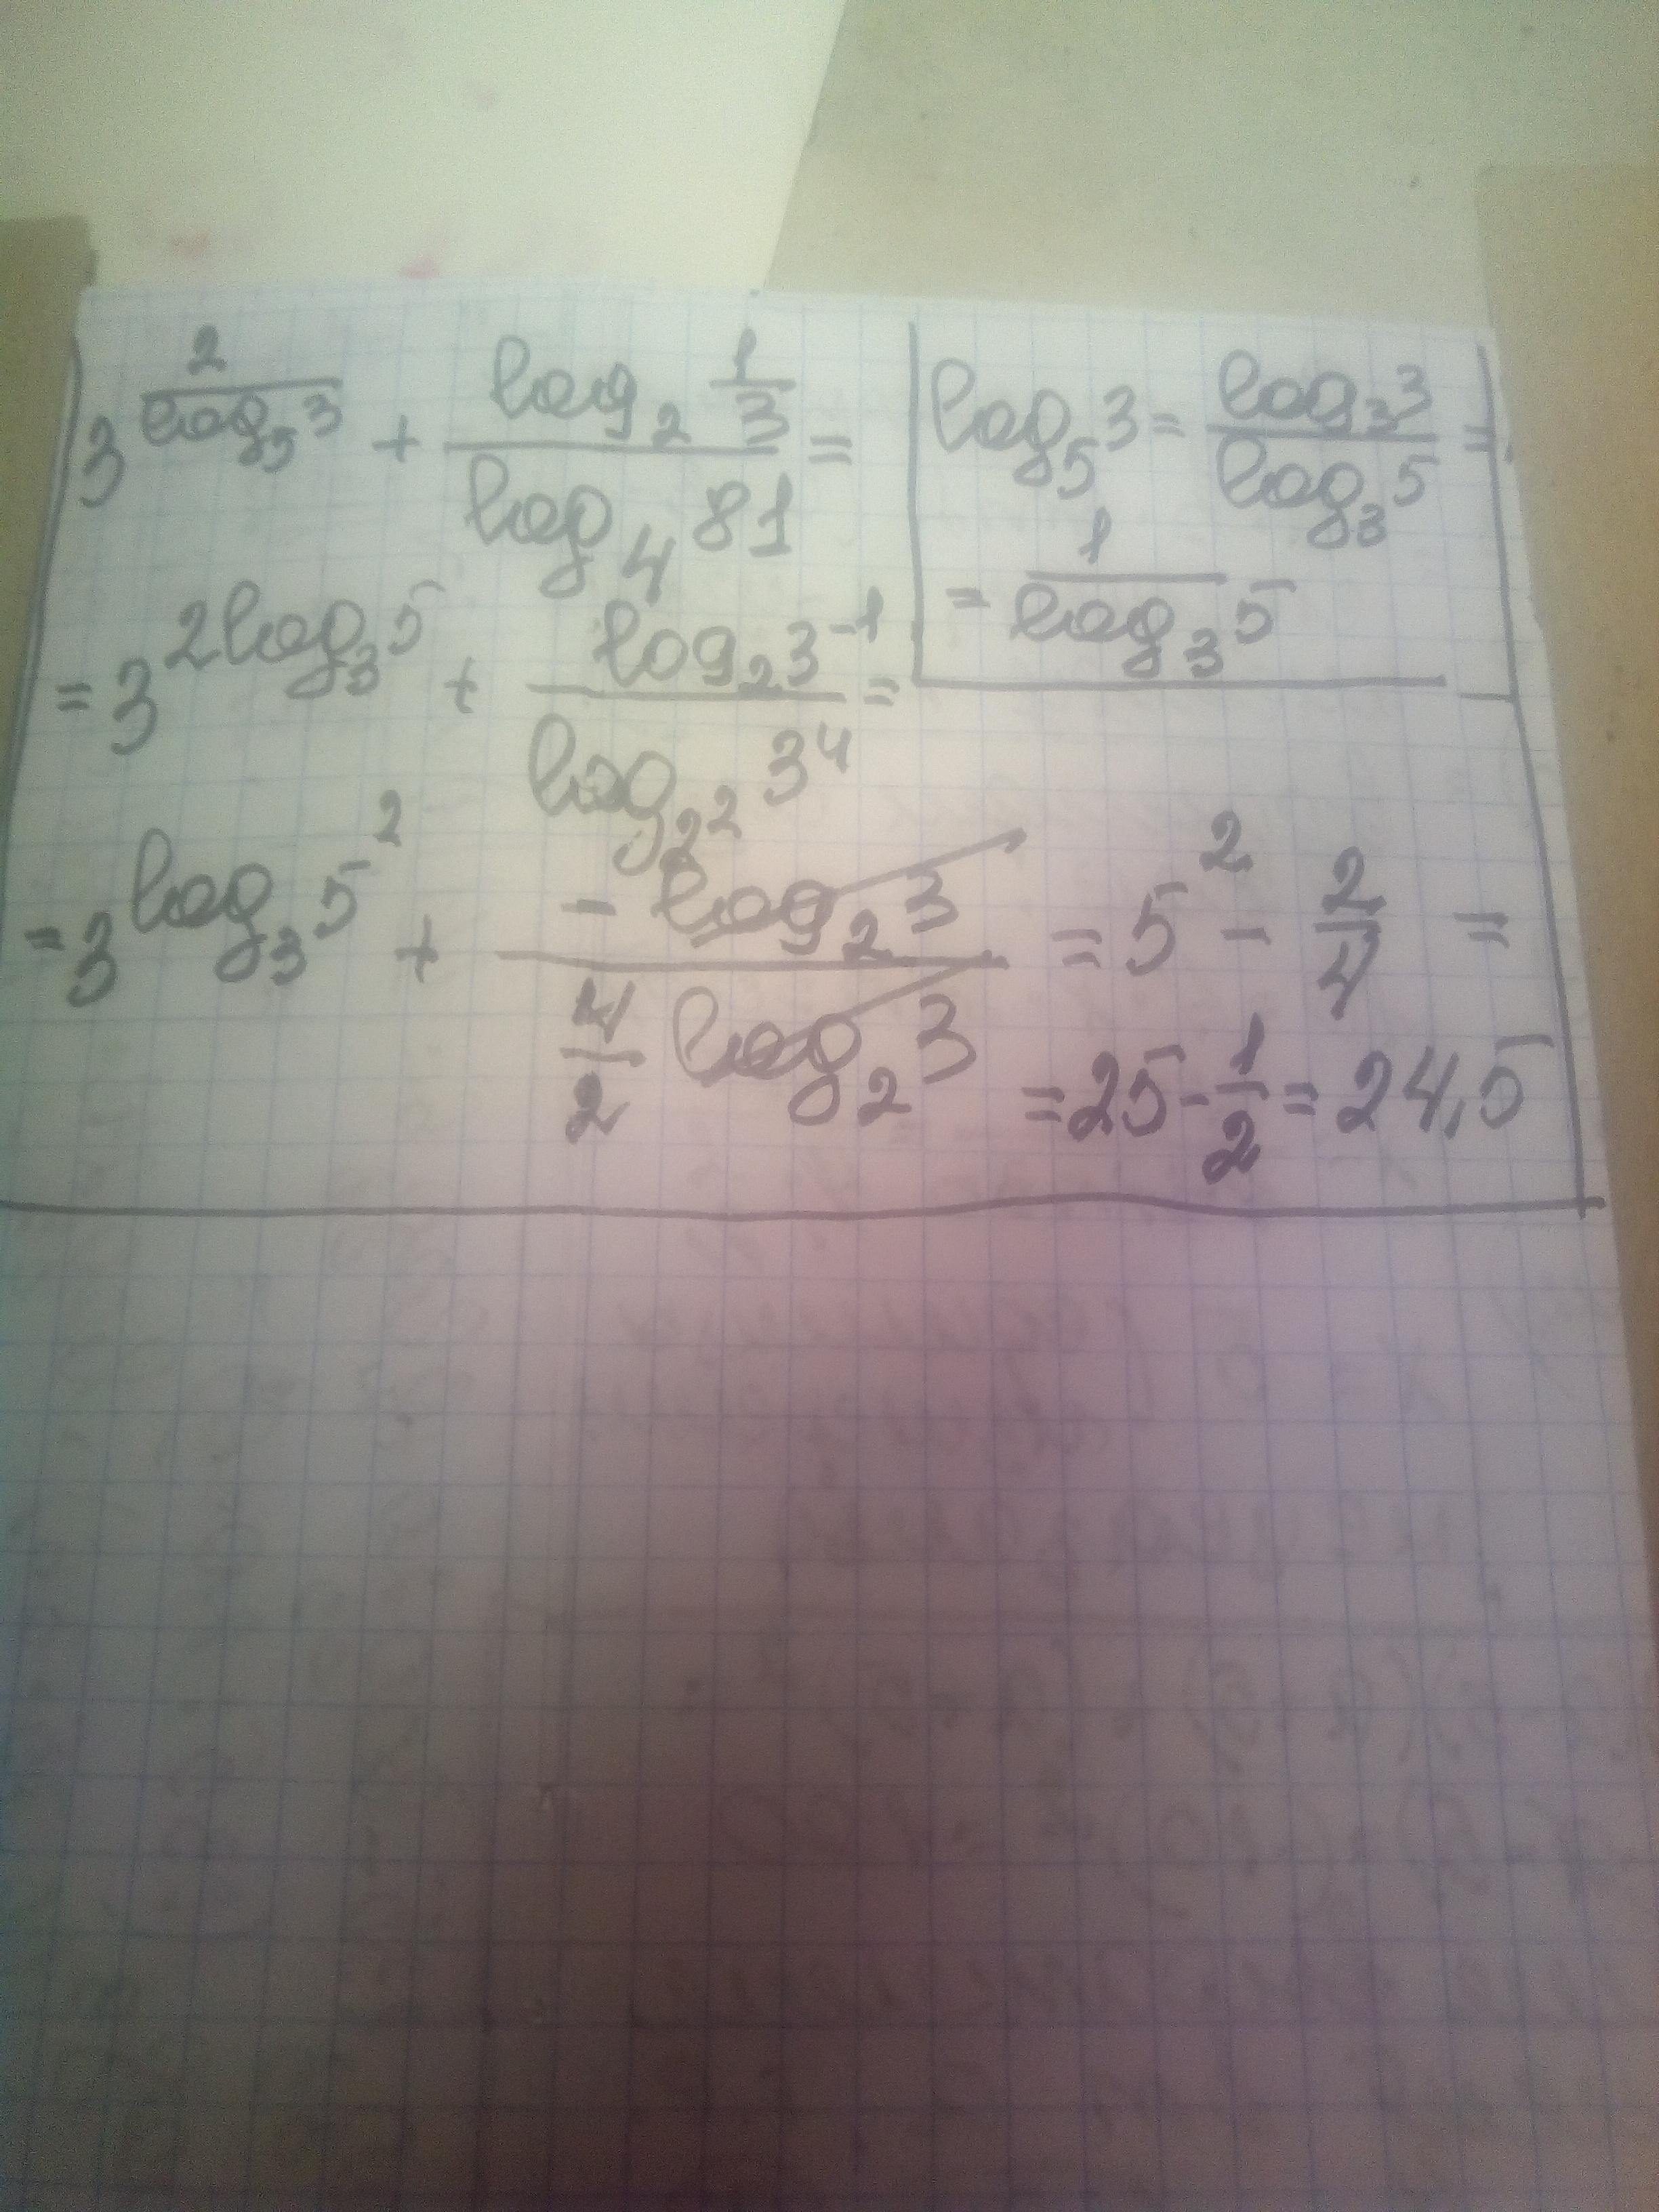 3^(2/log₅3) + (log₂ 1/3)/(log₄ 81) =
log₅3 = (log₃3)/(log₃5) =
= 1/(log₃5)
= 3^(2log₃5) + (log₂3⁻¹)/(log_(2²) 3⁴) =
= 3^(log₃5²) + (- log₂3)/(4/2 log₂3) = 5² - 2/4 =
= 25 - 1/2 = 24,5